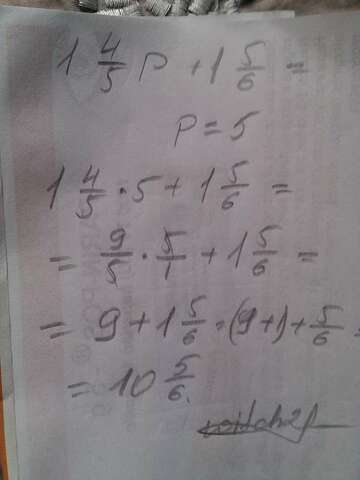 1 4/5 p + 1 5/6 =
p = 5
1 4/5 · 5 + 1 5/6 =
= 9/5 · 5/1 + 1 5/6 =
= 9 + 1 5/6 = (9+1) + 5/6 =
= 10 5/6.